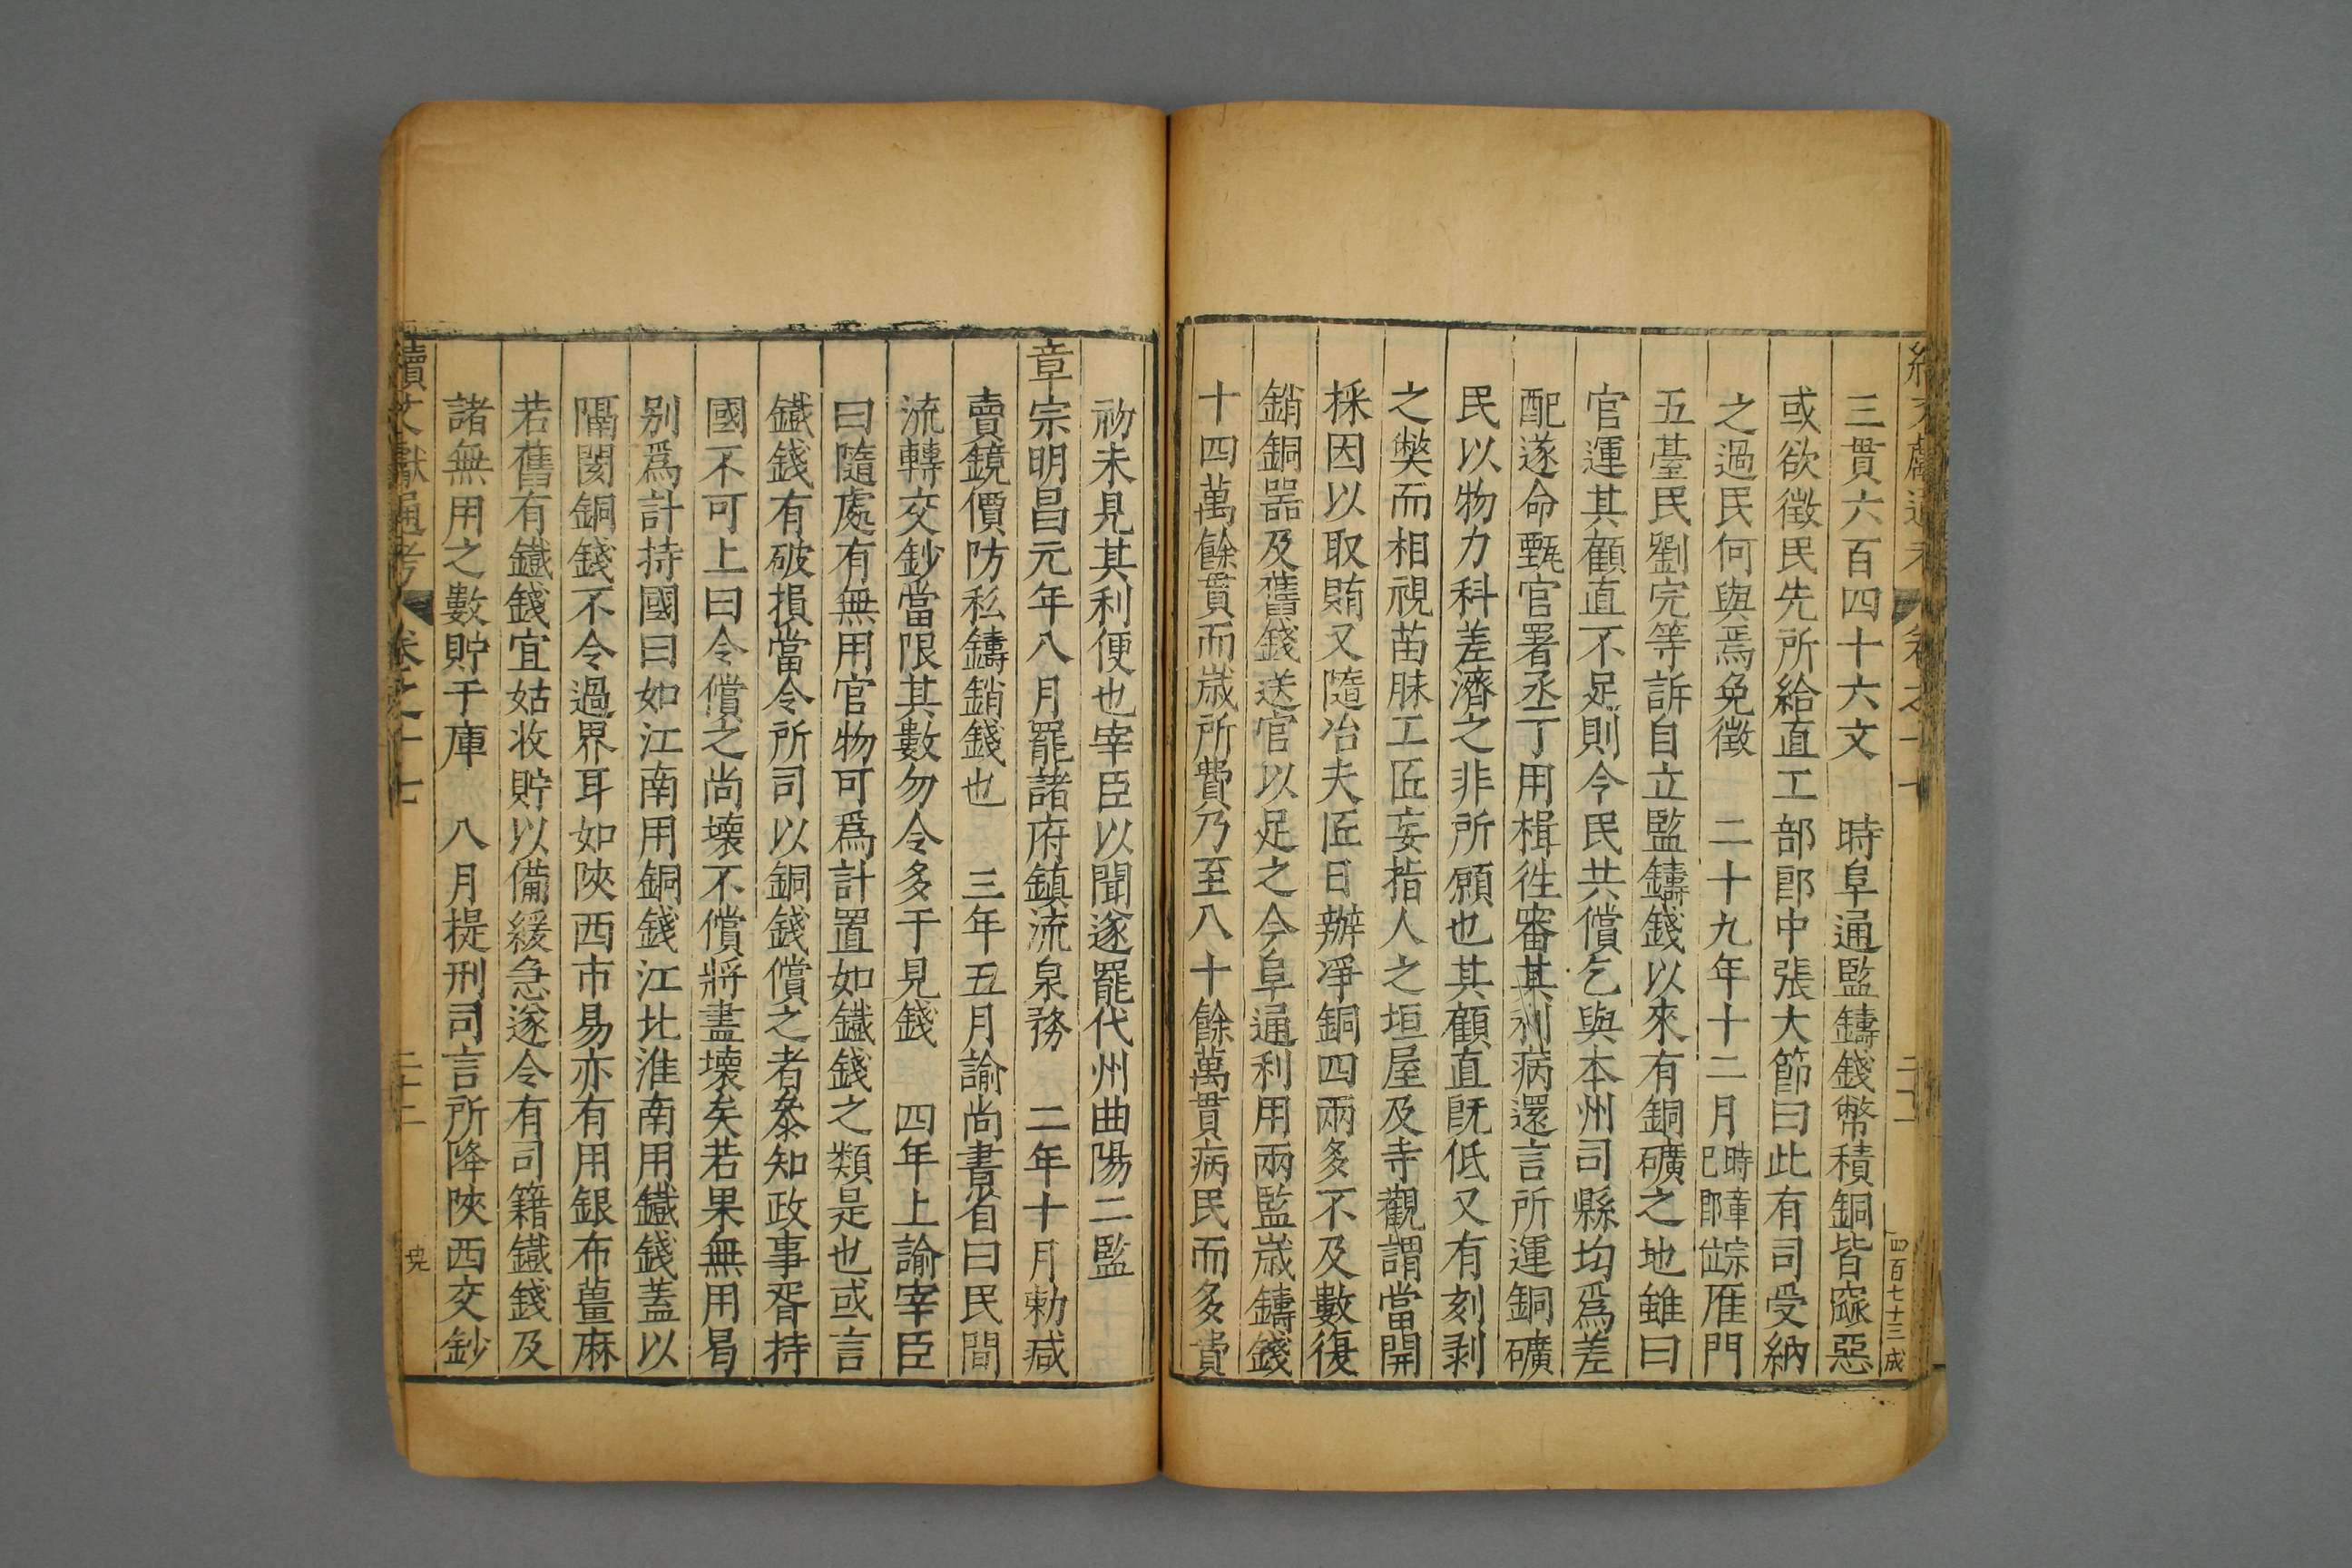 三貫六百四十六文　時阜通監鑄錢幣積銅皆窳惡
或欲徵民先所給直工部郎中張大節曰此有司受納
之過民何與焉免徵　二十九年十二月時章宗已即位雁門
五臺民劉完等訴自立監鑄錢以來有銅礦之地雖曰
官運其顧直不足則令民共償乞與本州司縣均爲差
配遂命甄官署丞丁用楫徃審其利病還言所運銅礦
民以物力科差濟之非所願也其顧直旣低又有刻剥
之獘而相視苗脉工匠妄指人之垣屋及寺觀謂當開
採因以取賄又隨冶夫匠日辦凈銅四兩多不及數復
銷銅器及舊錢送官以足之今阜通利用兩監歲鑄錢
十四萬餘貫而歲所費乃至八十餘萬貫病民而多費
初未見其利便也宰臣以聞遂罷代州曲陽二監
章宗明昌元年八月罷諸府鎮流泉務　二年十月勅减
賣鏡價防私鑄銷錢也　三年五月諭尚書省曰民間
流轉交鈔當限其數勿令多于見錢　四年上諭宰臣
曰隨處有無用官物可爲計置如鐵錢之類是也或言
鐵錢有破損當令所司以銅錢償之者叅知政事胥持
國不可上曰令償之尚壊不償將盡壊矣若果無用曷
别爲計持國曰如江南用銅錢江北淮南用鐵錢蓋以
隔閡銅錢不令過界耳如陜西市易亦有用銀布薑麻
若舊有鐵錢宜姑收貯以備緩急遂令有司籍鐵錢及
諸無用之數貯于庫　八月提刑司言所降陜西交鈔
續文獻通考　卷之十七　二十二